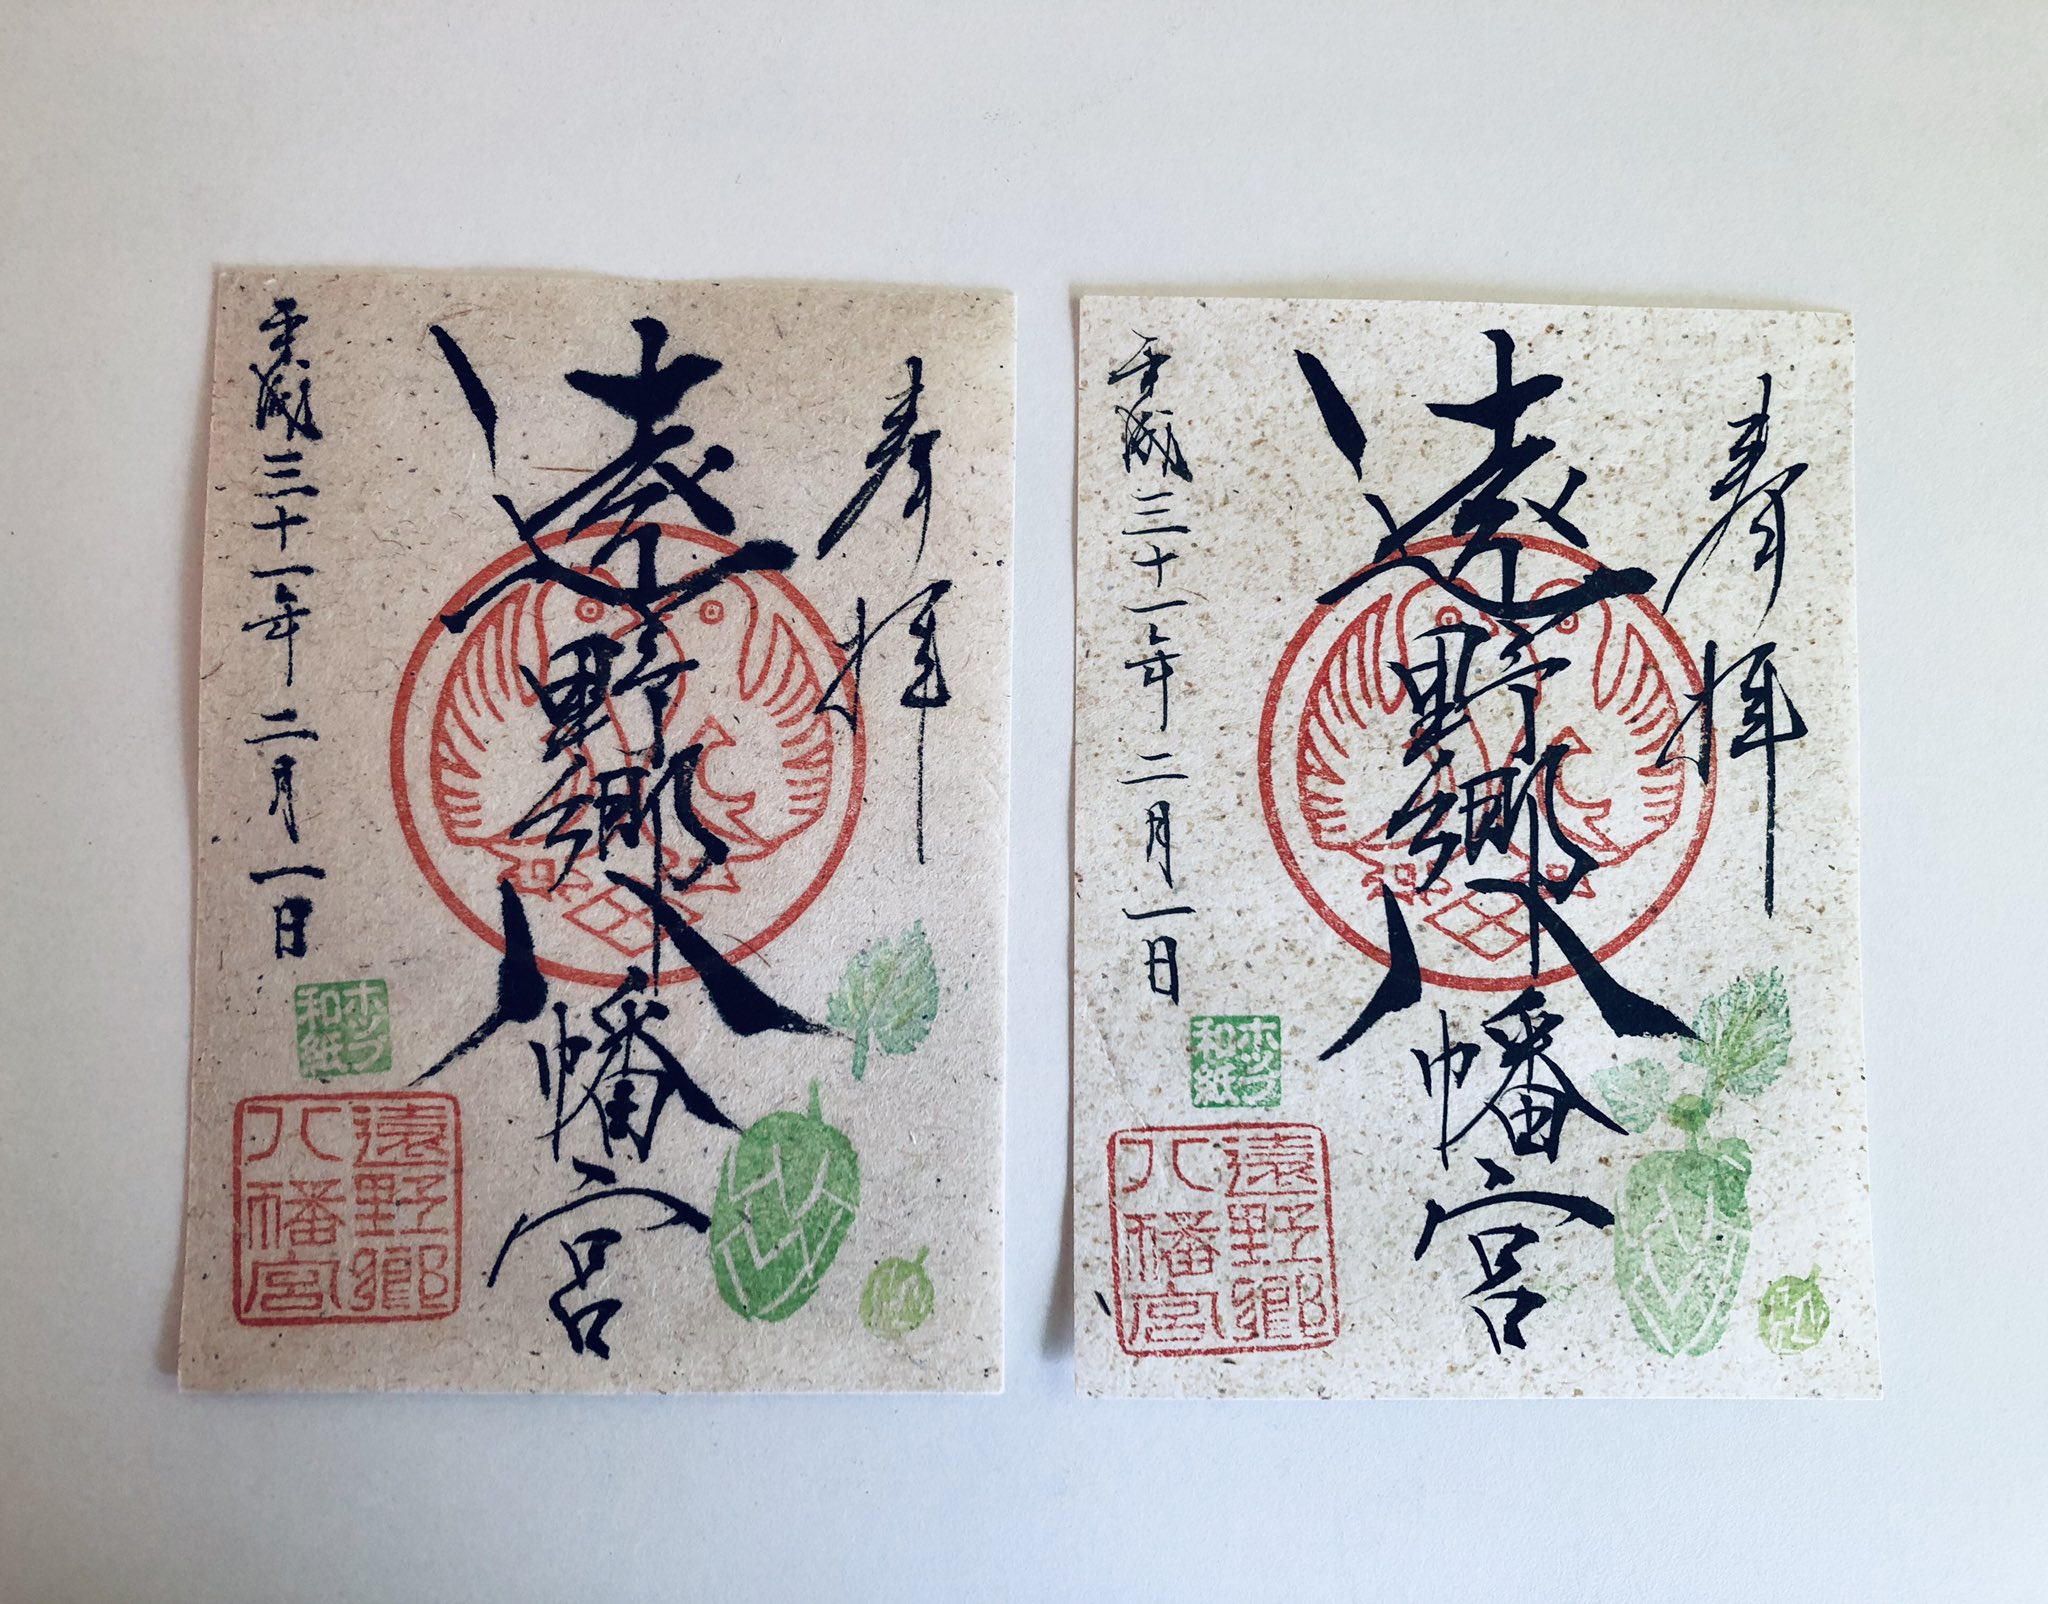 奉拝
遠野郷八幡宮
平成三十一年二月一日
ホップ
和紙
遠野郷
八幡宮
奉拝
遠野郷八幡宮
平成三十一年二月一日
ホップ
和紙
遠野郷
八幡宮